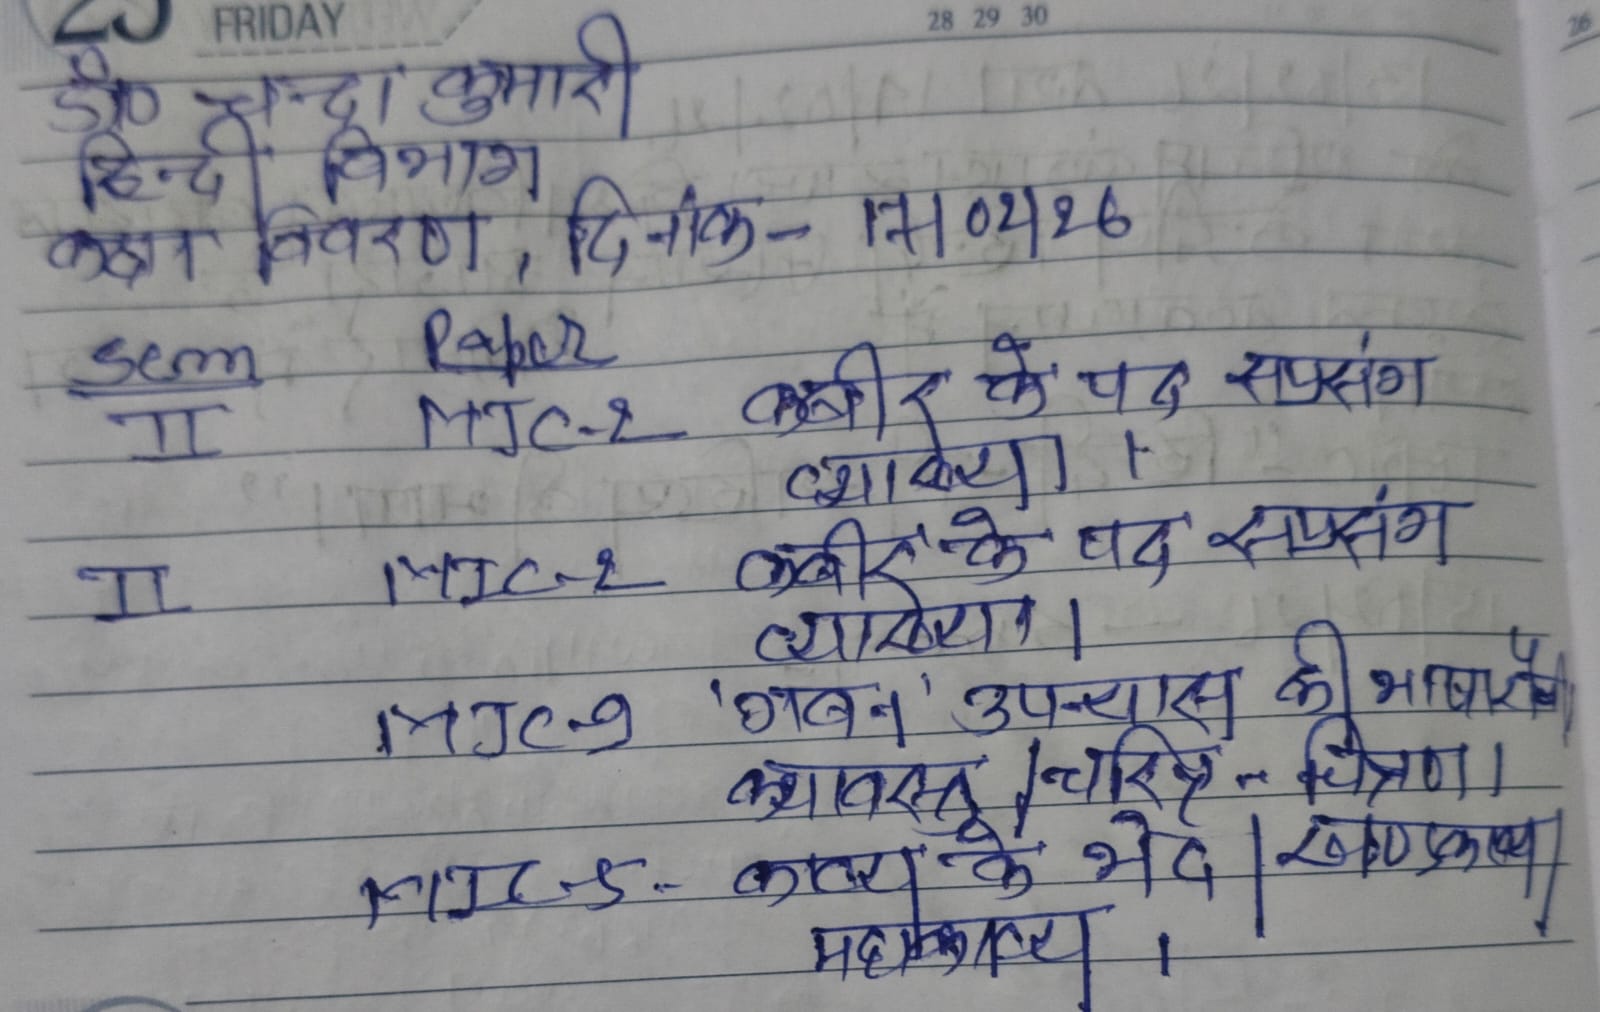 FRIDAY
28 29 30
26
डॉ० चन्दा कुमारी
हिन्दी विभाग
कक्षा विवरण, दिनांक- 17/02/26
Sem Paper
II MJC-2 कबीर के पद सप्रसंग
व्याख्या ।
II MJC-2 कबीर के पद सप्रसंग
व्याख्या ।
MJC-9 'गबन' उपन्यास की
कथावस्तु / चरित्र-चित्रण ।
MJC-5- काव्य के भेद | खण्डकाव्य /
महाकाव्य ।